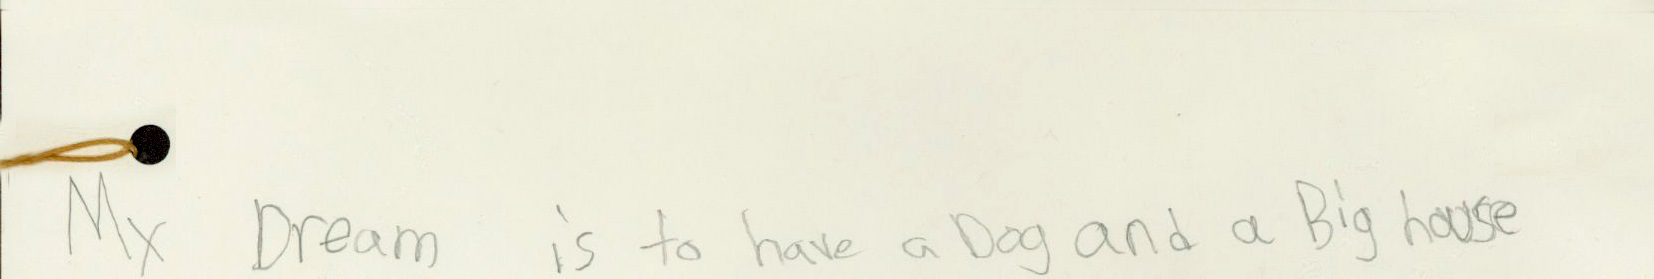 My Dream is to have a Dog and a Big house